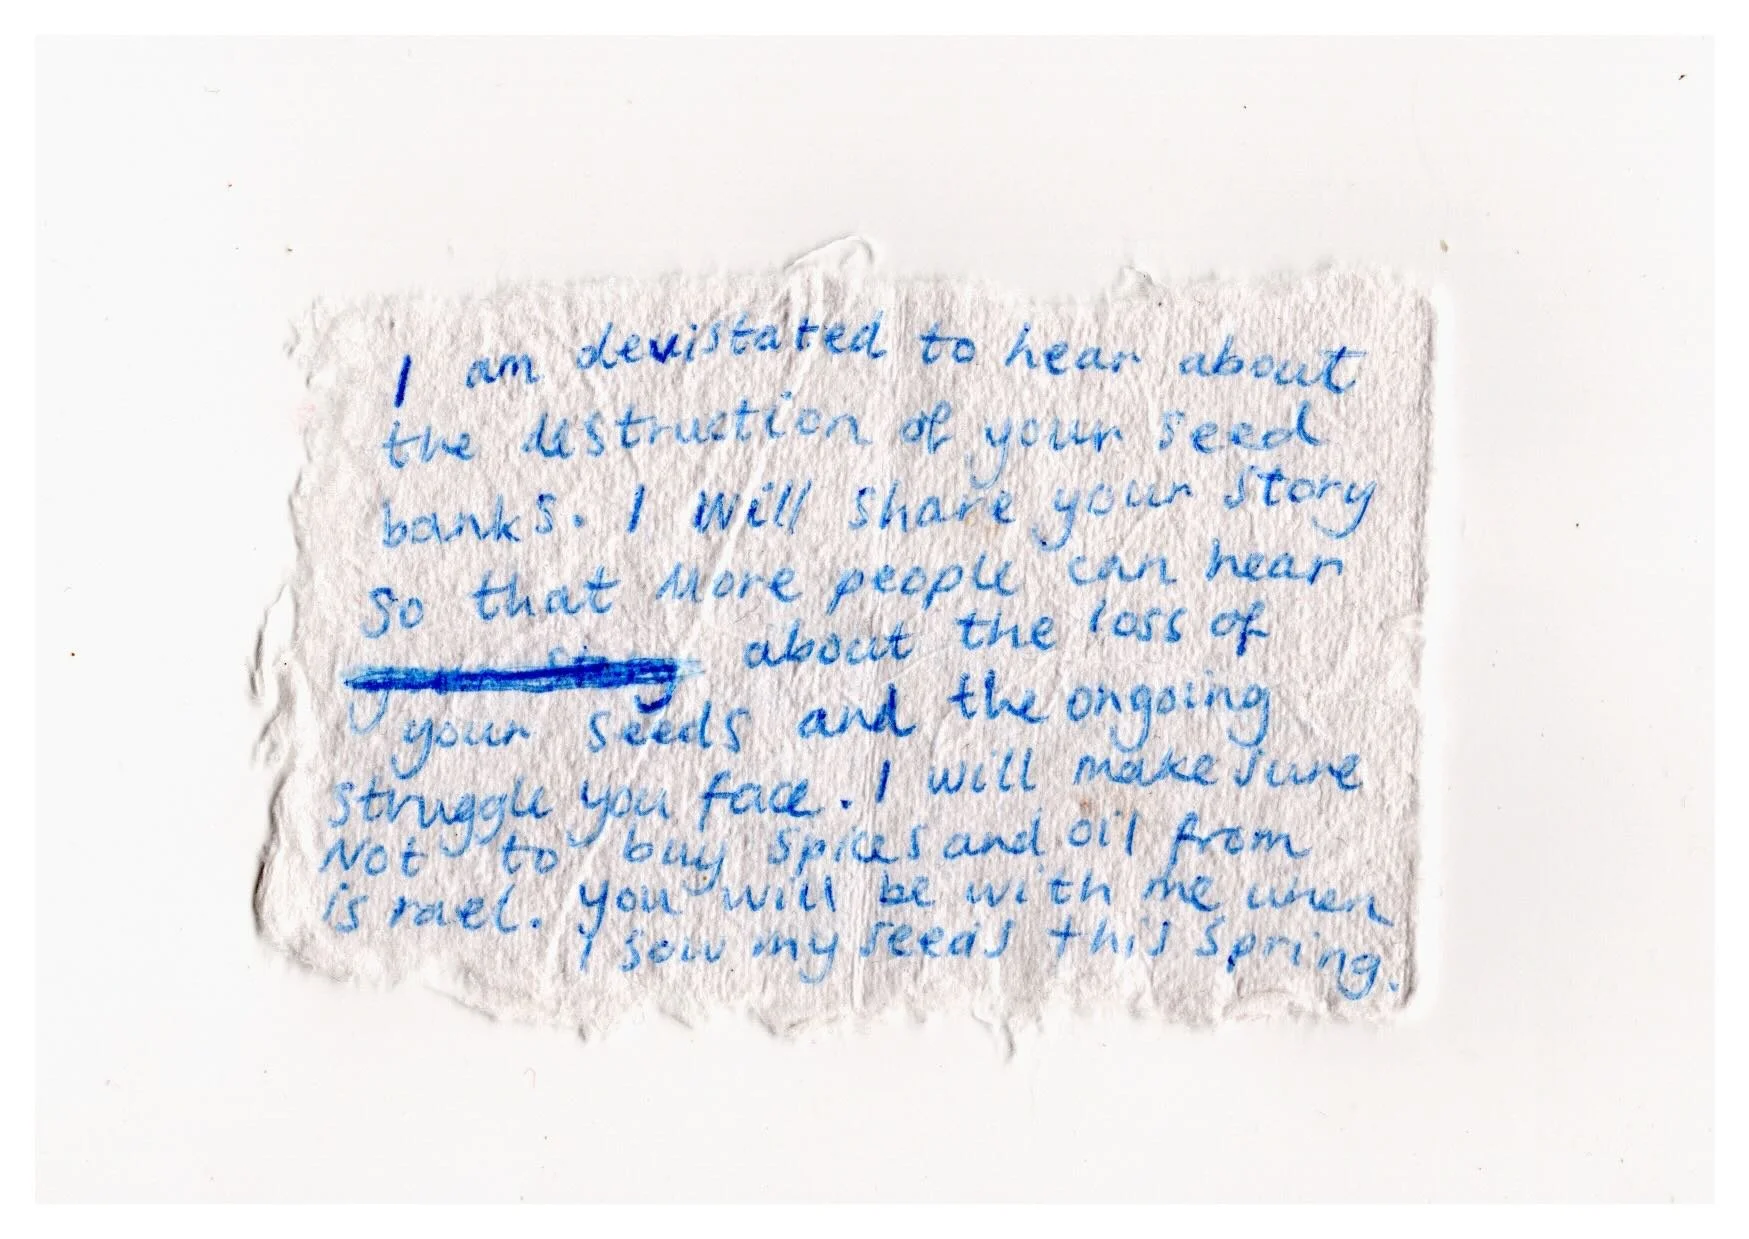 I am devistated to hear about
the destruction of your seed
banks. I will share your story
so that more people can hear
about the loss of
your seeds and the ongoing
struggle you face. I will make sure
Not to buy spices and oil from
israel. you will be with me when
I sow my seeds this spring.